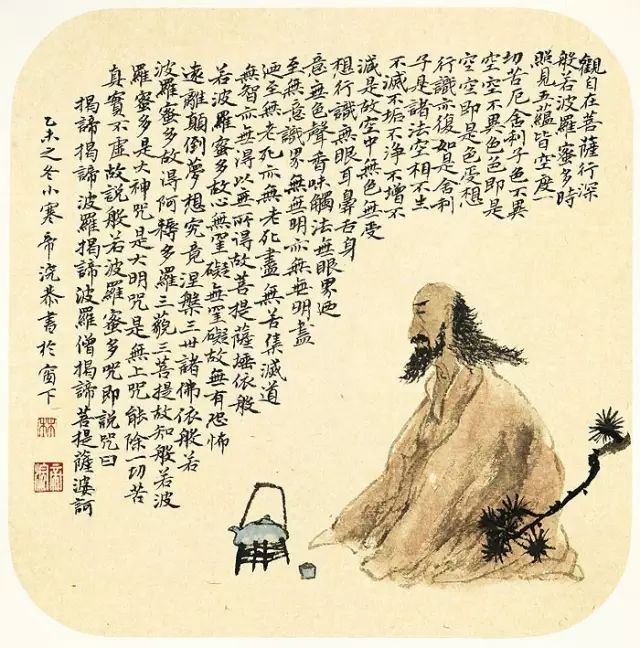 觀自在菩薩行深
般若波羅蜜多時
照見五蘊皆空度一
切苦厄舍利子色不異
空空不異色色即是
空空即是色受想
行識亦復如是舍利
子是諸法空相不生
不滅不垢不淨不增不
減是故空中無色無受
想行識無眼耳鼻舌身
意無色聲香味觸法無眼界迺
至無意識界無無明亦無無明盡
迺至無老死亦無老死盡無苦集滅道
無智亦無得以無所得故菩提薩埵依般
若波羅蜜多故心無罣礙無罣礙故無有恐怖
遠離顛倒夢想究竟涅槃三世諸佛依般若
波羅蜜多故得阿耨多羅三藐三菩提故知般若波
羅蜜多是大神咒是大明咒是無上咒能除切苦
真實不虛故說般若波羅蜜多咒即說咒曰
揭諦揭諦波羅揭諦波羅僧揭諦菩提薩婆訶
乙未之冬小寒帝浣恭書於窗下
林
帝浣